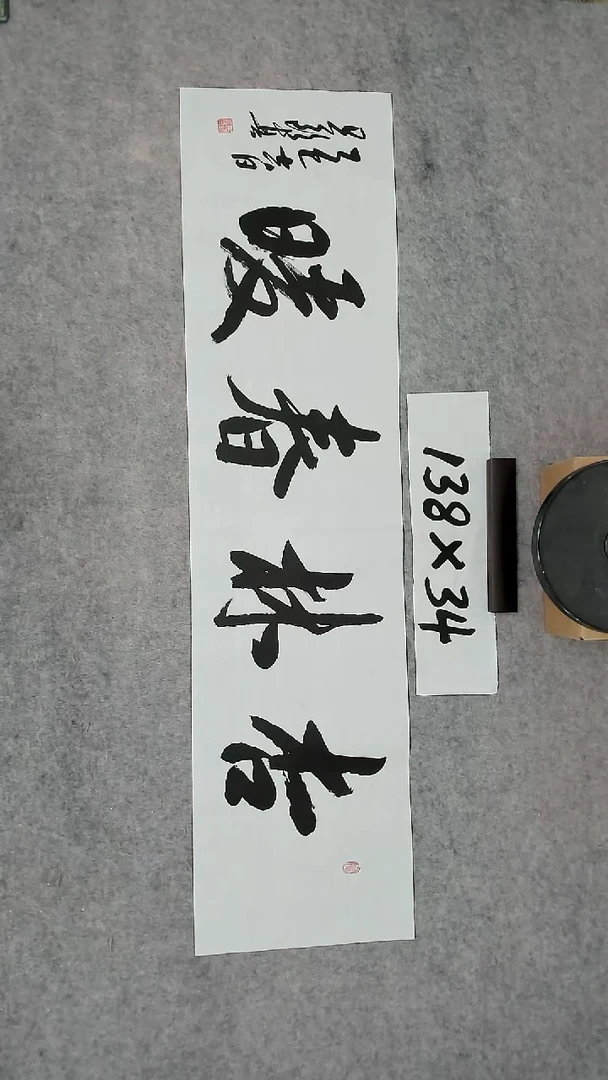 杏林春暖
138X34